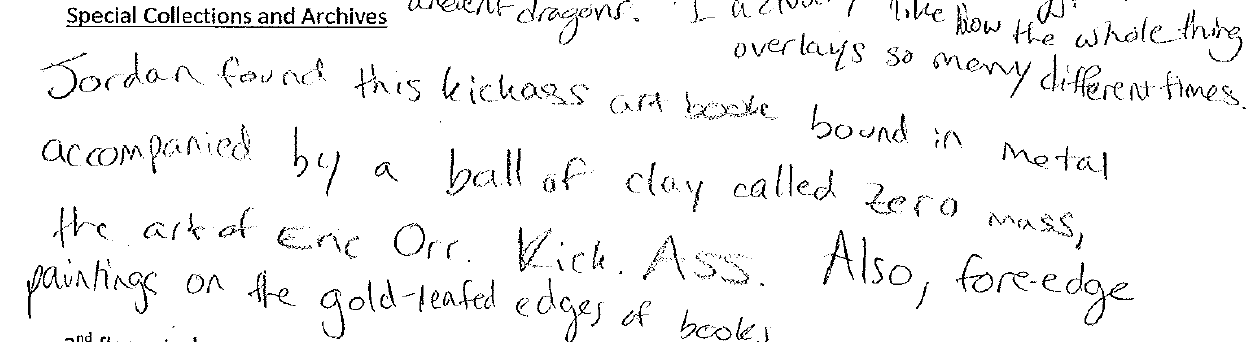 Special Collections and Archives
ancient dragons. I actually like how the whole thing
overlays so many different times.
Jordan found this kickass art book bound in metal
accompanied by a ball of clay called zero mass,
the art of Eric Orr. Kick. Ass. Also, fore-edge
paintings on the gold-leafed edges of books